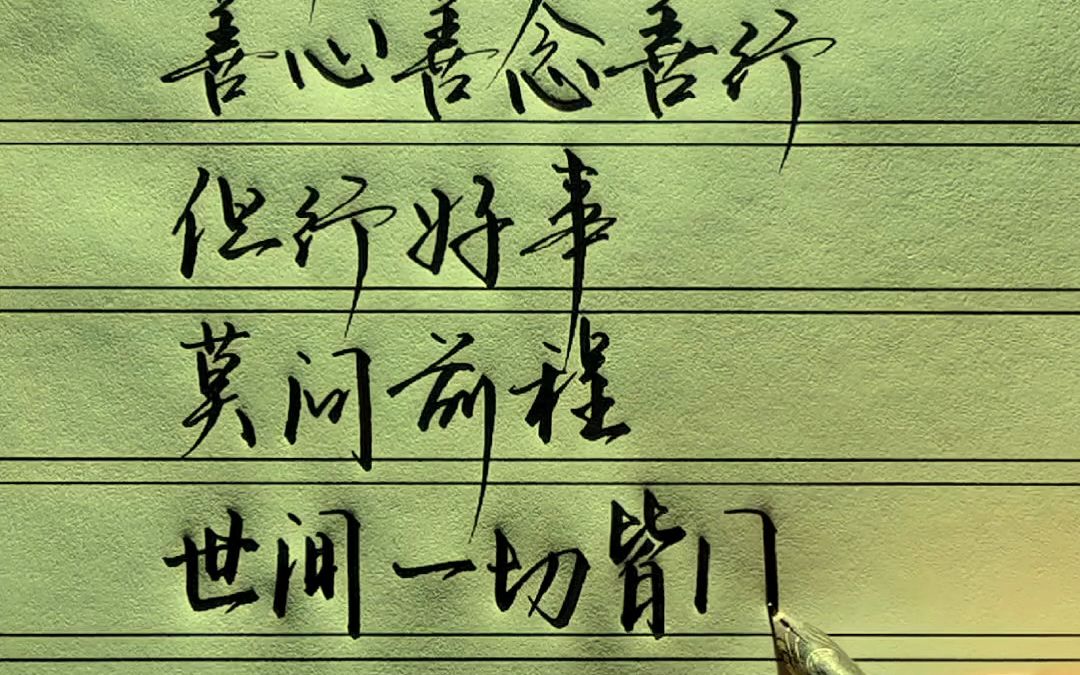 善心善念善行
但行好事
莫问前程
世间一切皆